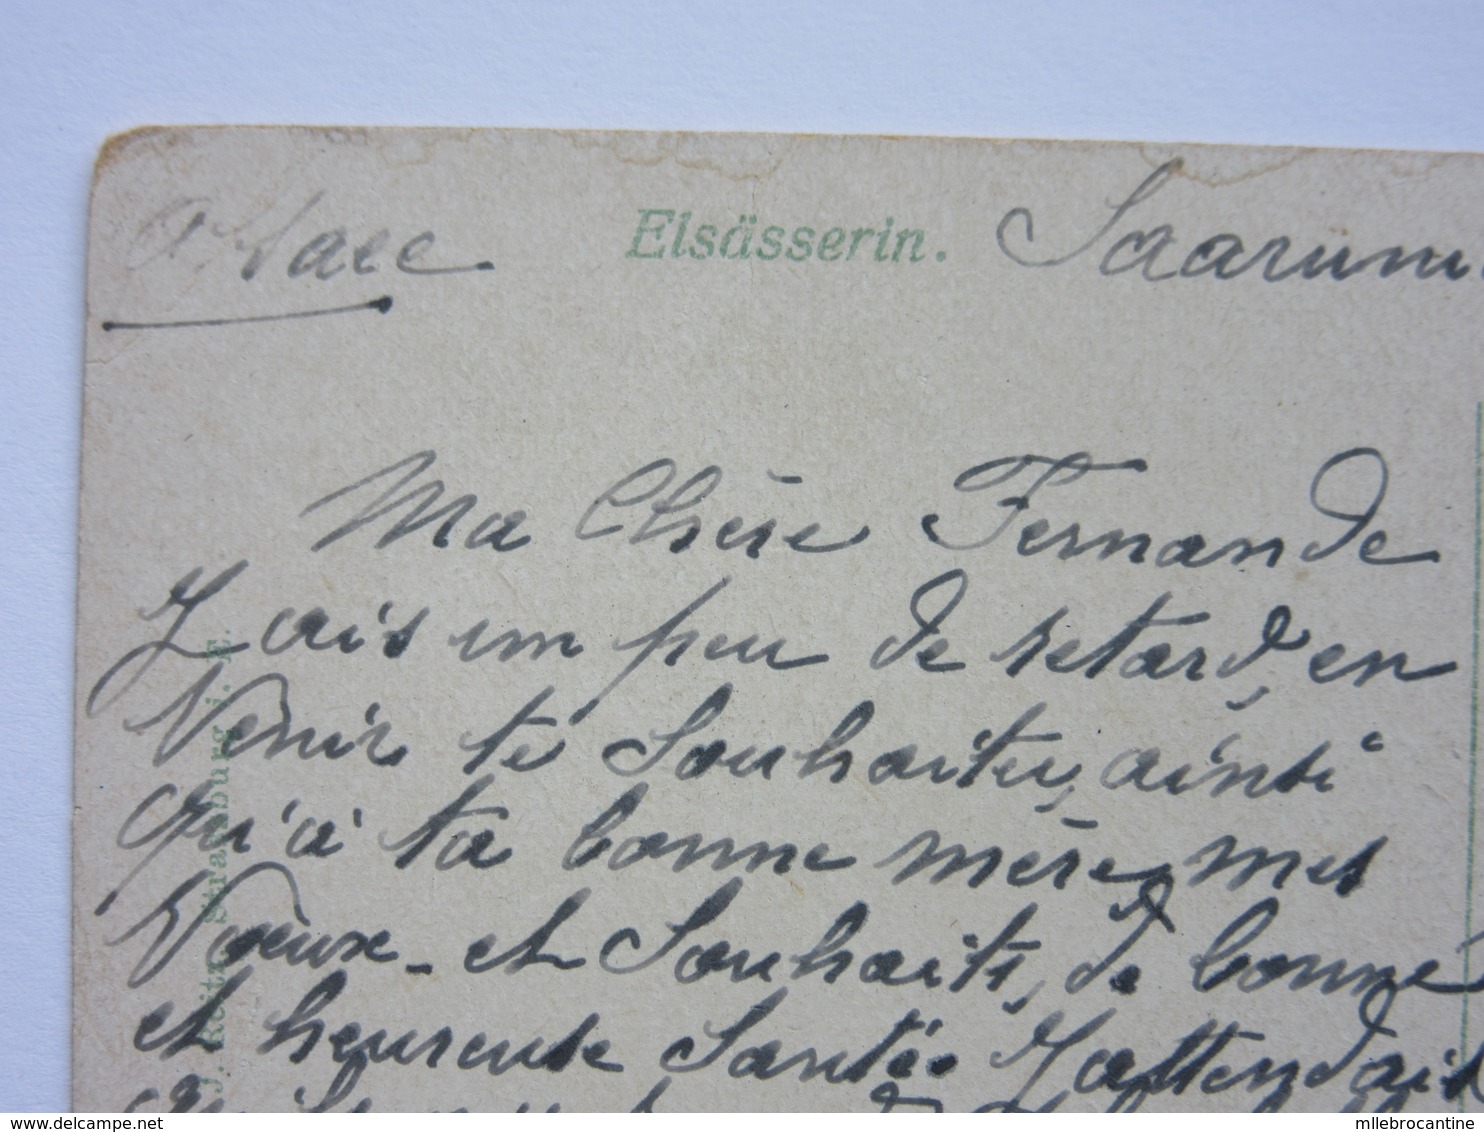 Alsace Elsässerin. Saarun
Ma Chère Fernande
J'ais un peu de retard, en
Venir te Souhaiter, ainsi
qu'à ta bonne mère, mes
Voeux et Souhaits, de bonne
et heureuse Santée. J'attendais
J. Reitz, Strassburg i. E.
www.delcampe.net
mllebrocantine